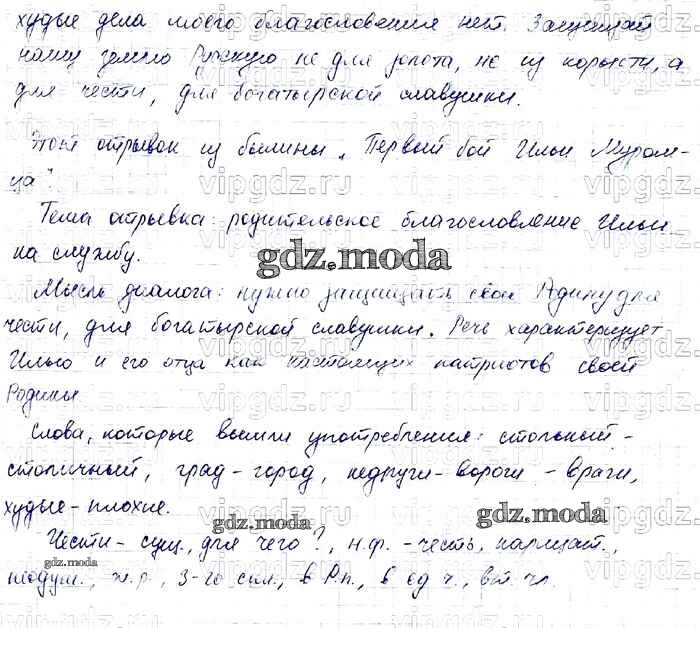 худые дела моего благословения нет. Защищай
нашу землю Русскую не для золота, не из корысти, а
для чести, для богатырской славушки.
Этот отрывок из былины „Первый бой Ильи Муром-
ца"
Тема отрывка: родительское благословление Ильи
на службу.
gdz.moda
Мысль диалога: нужно защищать свою Родину для
чести, для богатырской славушки. Речь характеризует
Илью и его отца как настоящих патриотов своей
Родины
Слова, которые вышли употребления: стольный -
столичный, град - город, недруги - вороги - враги,
худые - плохие.
gdz.moda gdz.moda
Чести - сущ., для чего?, н.ф. - честь, нарицат.,
неодуш., ж.р., 3-го скл., в Р.п., в ед.ч., вт. чл.
gdz.moda
vipgdz.ru